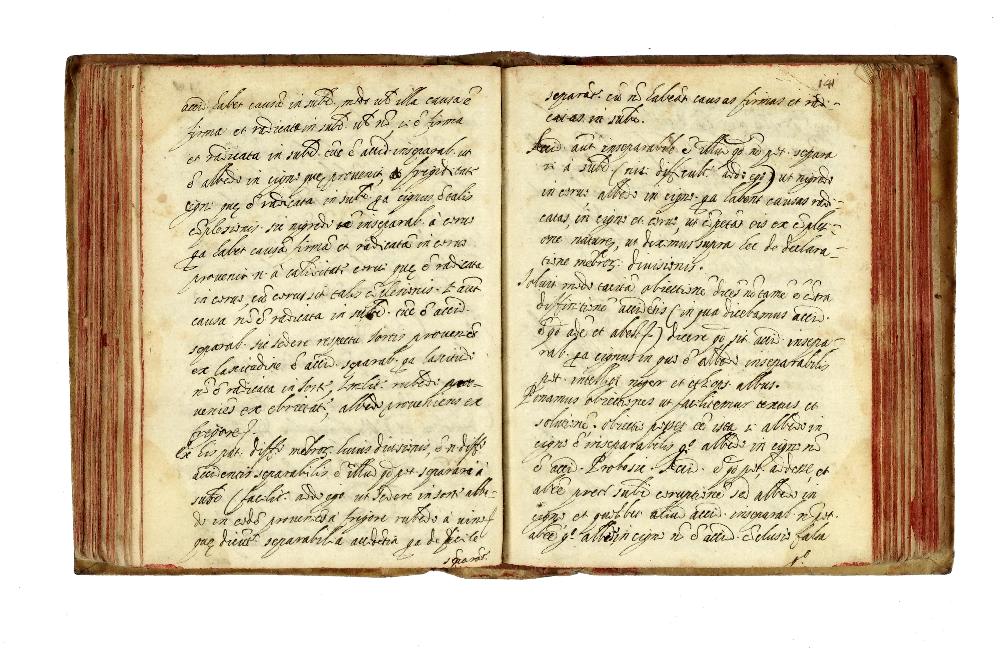 accid. habet causã in subto. modo ubi illa causa ẽ
firma et radicata in subto. ubi nõ ẽ firma
et radicata in subto. ẽ accid. inseparab. ut
ẽ albedo in cigno que provenit a frigiditate
cigni que ẽ radicata in subto. qa cignus ẽ talis
cõplesionis. sic nigredo inseparab. a corvo
qa habet causã firmã et radicatã in corvo
provenit n. à caliditate corvi que ẽ radicata
in corvo, cũ corvus sit talis cõplesionis. Si aut
causa nõ ẽ radicata in subto. ẽ accid.
separab. sic sedere respectu sortis proveniẽs
ex lasitudine ẽ accid. separab. qa lasitud.
nõ ẽ radicata in sorte. rubedo
veniẽs ex ebrietate, albedo proveniens ex
frigore
Ex his pat. diffa. mẽbroz. huius divisionis, ẽ n. diffa.
accidentis separabilis ẽ illud qd pt. separari a
subto (facilit. ut sedere in sorte albe-
do in eodẽ proveniẽs a frigore rubedo à vino
que dicunt. separabilia accidẽtia qa de facile
separãt.
141
separãt. cũ nõ habeãt causas firmas et radi-
catas in subto.
Accid. aut inseparabile ẽ illud qd nõ pt. separa
ri à subto (nisi difficult. ut nigredo
in corvo albedo in cigno. qa habent causas radi-
catas, in cigno et corvo, ut cõpetãt eis ex cõplesi-
one nature, ut diximus supra hec de declara-
tione mẽbroz. divisionis.
Soluit modo tacitã obiectionẽ dicẽs nõ tamẽ ẽ cõtra
diffinitionẽ accidẽtis (in qua dicebamus accid.
ẽ qd adẽe et abẽe) dicere qd sit accid. insepa-
rab. qa cignus in quo ẽ albedo inseparabilis
pt. intelligi niger et ethiops albus.
Ponamus obiectiones ut facilitemur textus et
solutione. obiectio ẽ ista si albedo in
cigno ẽ inseparabilis go. albedo in cigno nõ
ẽ accid. Probo. Accid. ẽ qd pt. adẽe, et
abẽe preter subti. coruptionẽ sed albedo in
cigno et quodlibet aliud accid. inseparab. nõ pt.
abẽe go. albedo in cigno nõ ẽ accid. cõclusio falsa